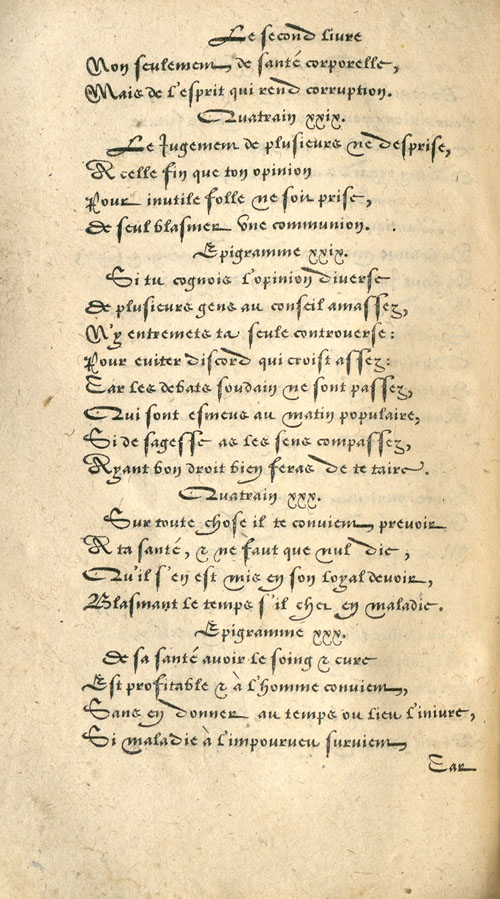 Le second livre
Non seulement de santé corporelle,
Mais de l'esprit qui rend corruption.
Quatrain xxix.
Le Jugement de plusieurs ne desprise,
A celle fin que ton opinion
Pour inutile folle ne soit prise,
De seul blasmer vne communion.
Epigramme xxix.
Si tu cognois l'opinion diverse
De plusieurs gens au conseil amassez,
N'y entremets ta seule controverse:
Pour eviter discord qui croist assez:
Car les debats soudain ne sont passez,
Qui sont esmeus au matin populaire,
Si de sagesse as les sens compassez,
Ayant bon droit bien feras de te taire.
Quatrain xxx.
Sur toute chose il te convient prevoir
A ta santé, & ne faut que nul die,
Qu'il s'en est mis en son loyal devoir,
Blasmant le temps s'il chet en maladie.
Epigramme xxx.
De sa santé avoir le soing & cure
Est profitable & à l'homme convient,
Sans en donner au temps ou lieu l'iniure,
Si maladie à l'impourueu survient,
Car